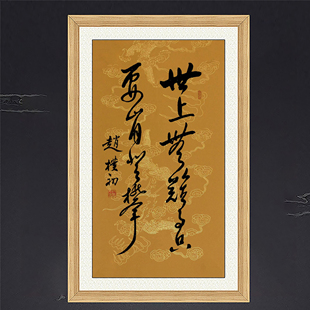 世上無難事只
要肯登攀
趙樸初